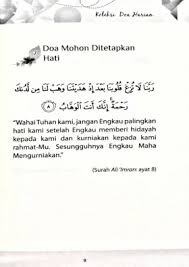 Koleksi Doa Harian
Doa Mohon Ditetapkan
Hati
رَبَّنَا لَا تُزِغْ قُلُوبَنَا بَعْدَ إِذْ هَدَيْتَنَا وَهَبْ لَنَا مِن لَّدُنكَ
رَحْمَةً إِنَّكَ أَنتَ الْوَهَّابُ ٨
"Wahai Tuhan kami, jangan Engkau palingkan
hati kami setelah Engkau memberi hidayah
kepada kami dan kurniakan kepada kami
rahmat-Mu. Sesungguhnya Engkau Maha
Mengurniakan."
(Surah Ali 'Imran: ayat 8)
9